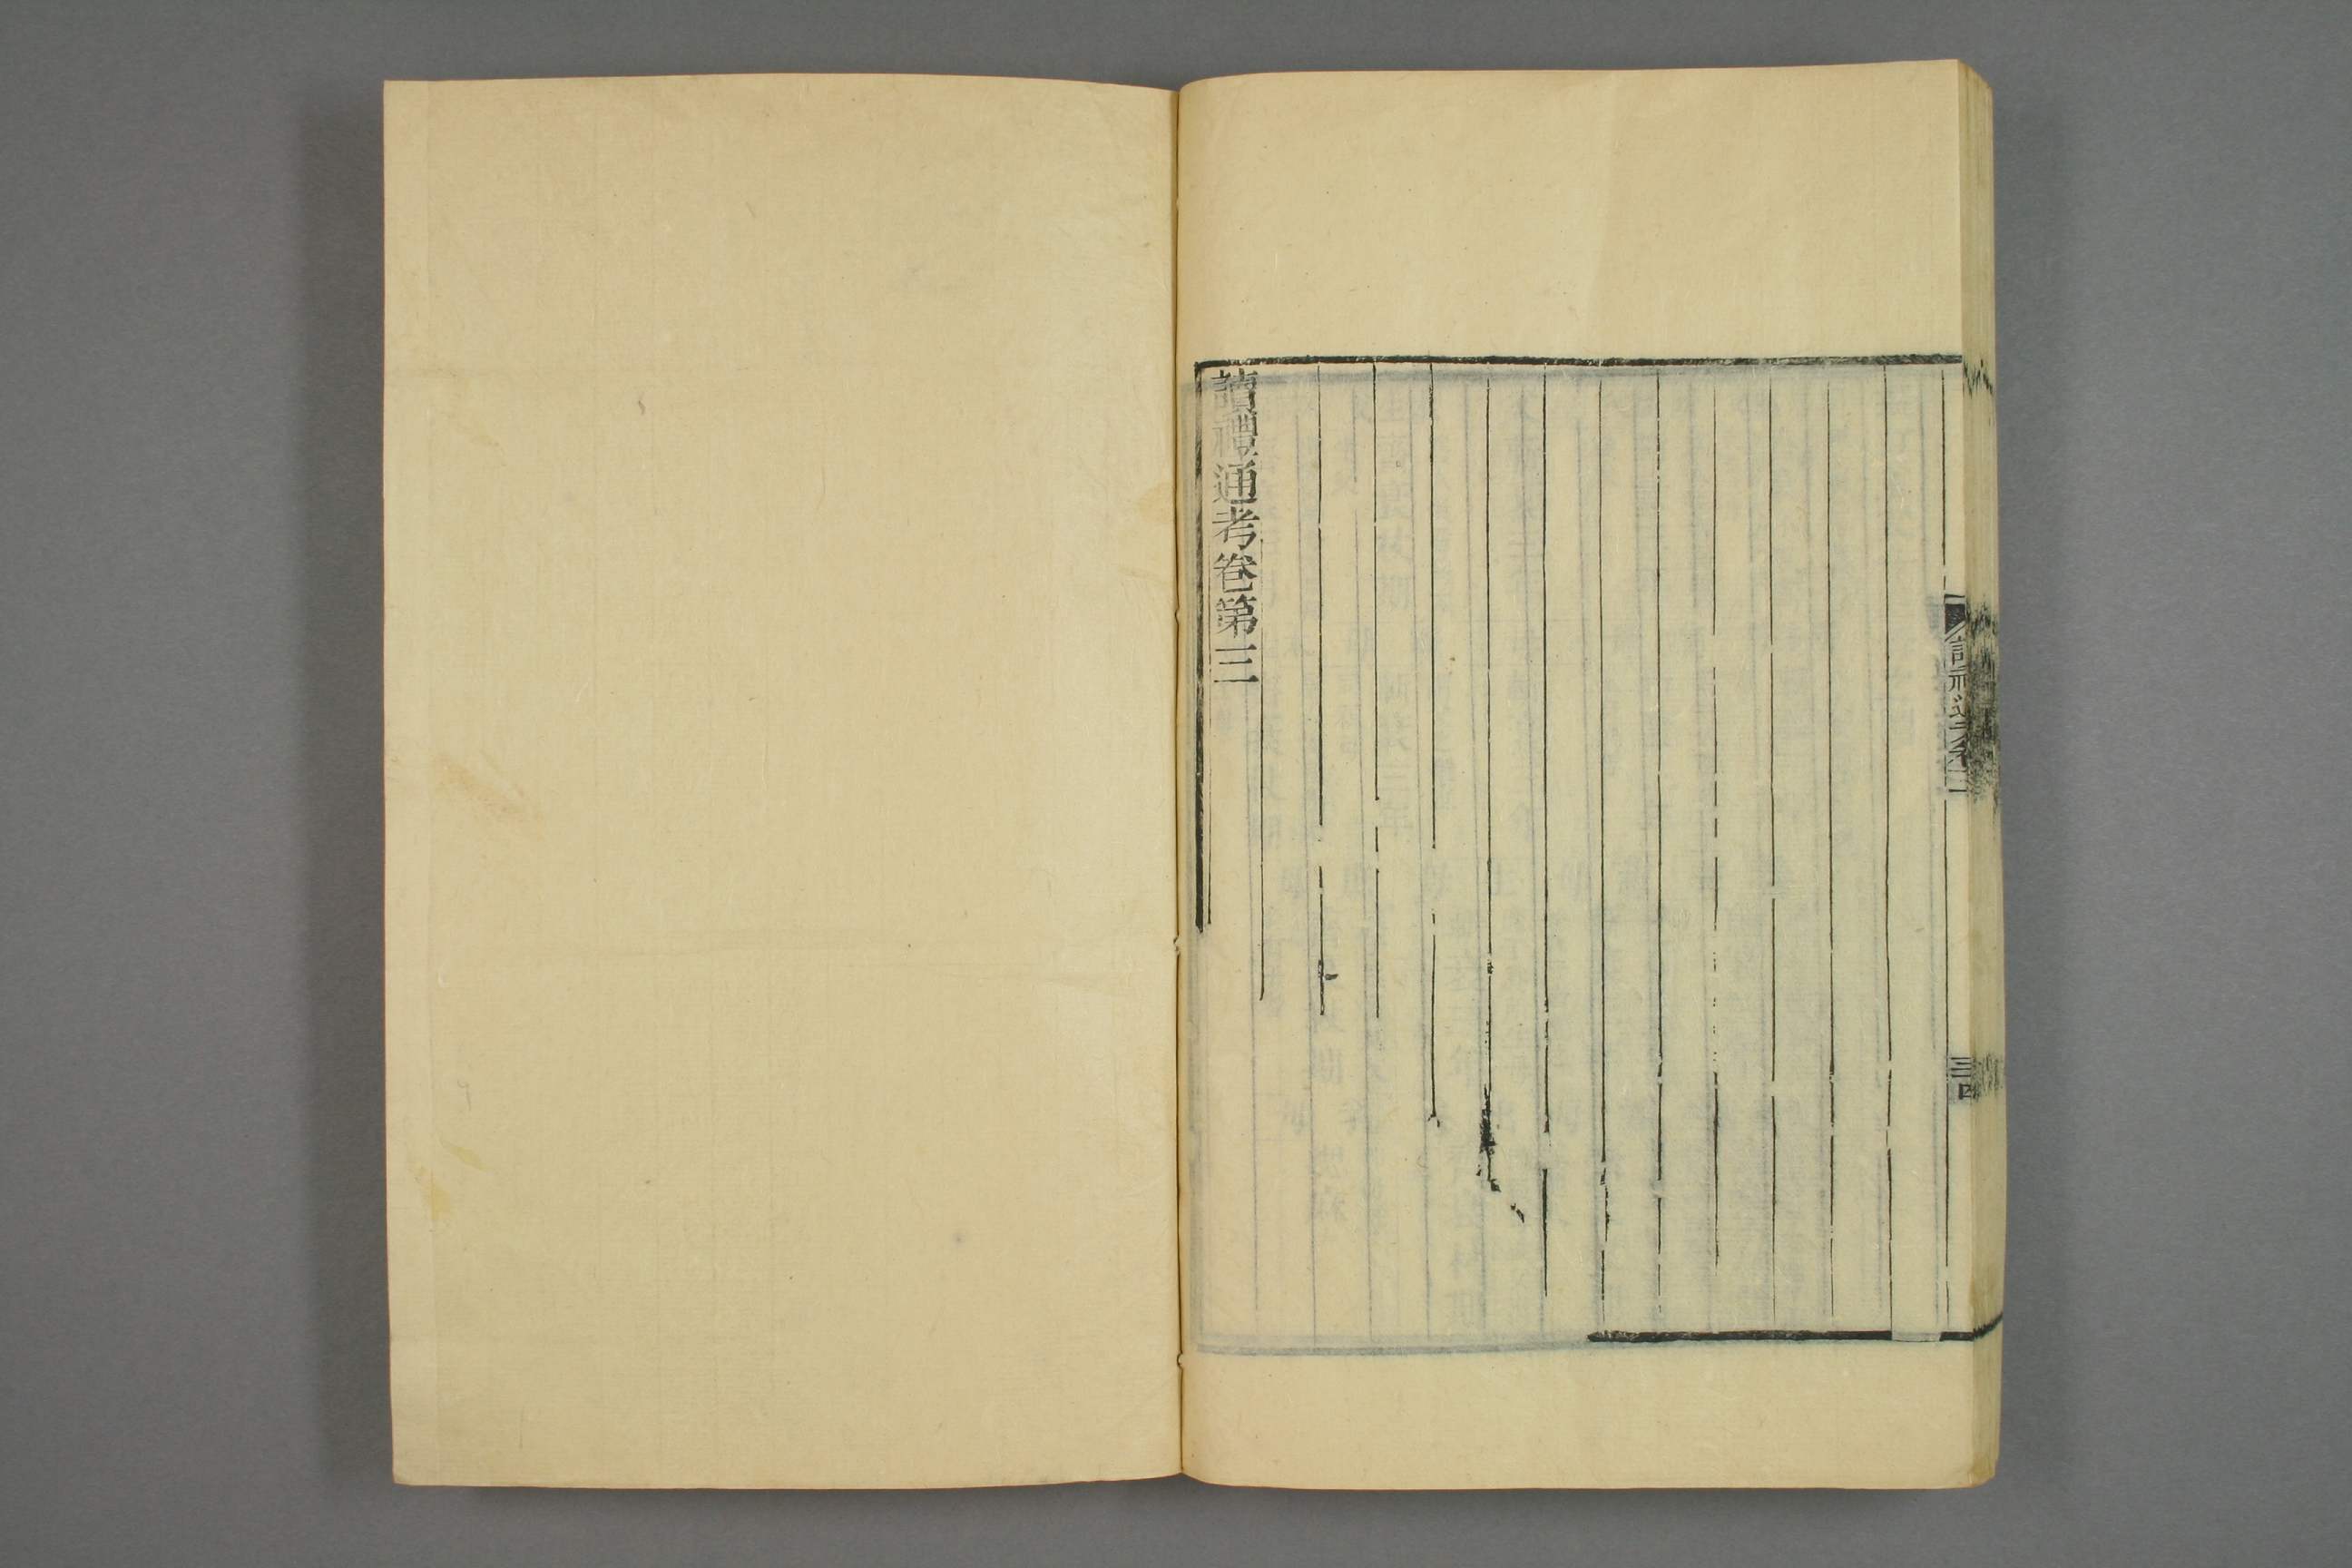 讀禮通考卷三
三四
讀禮通考卷第三